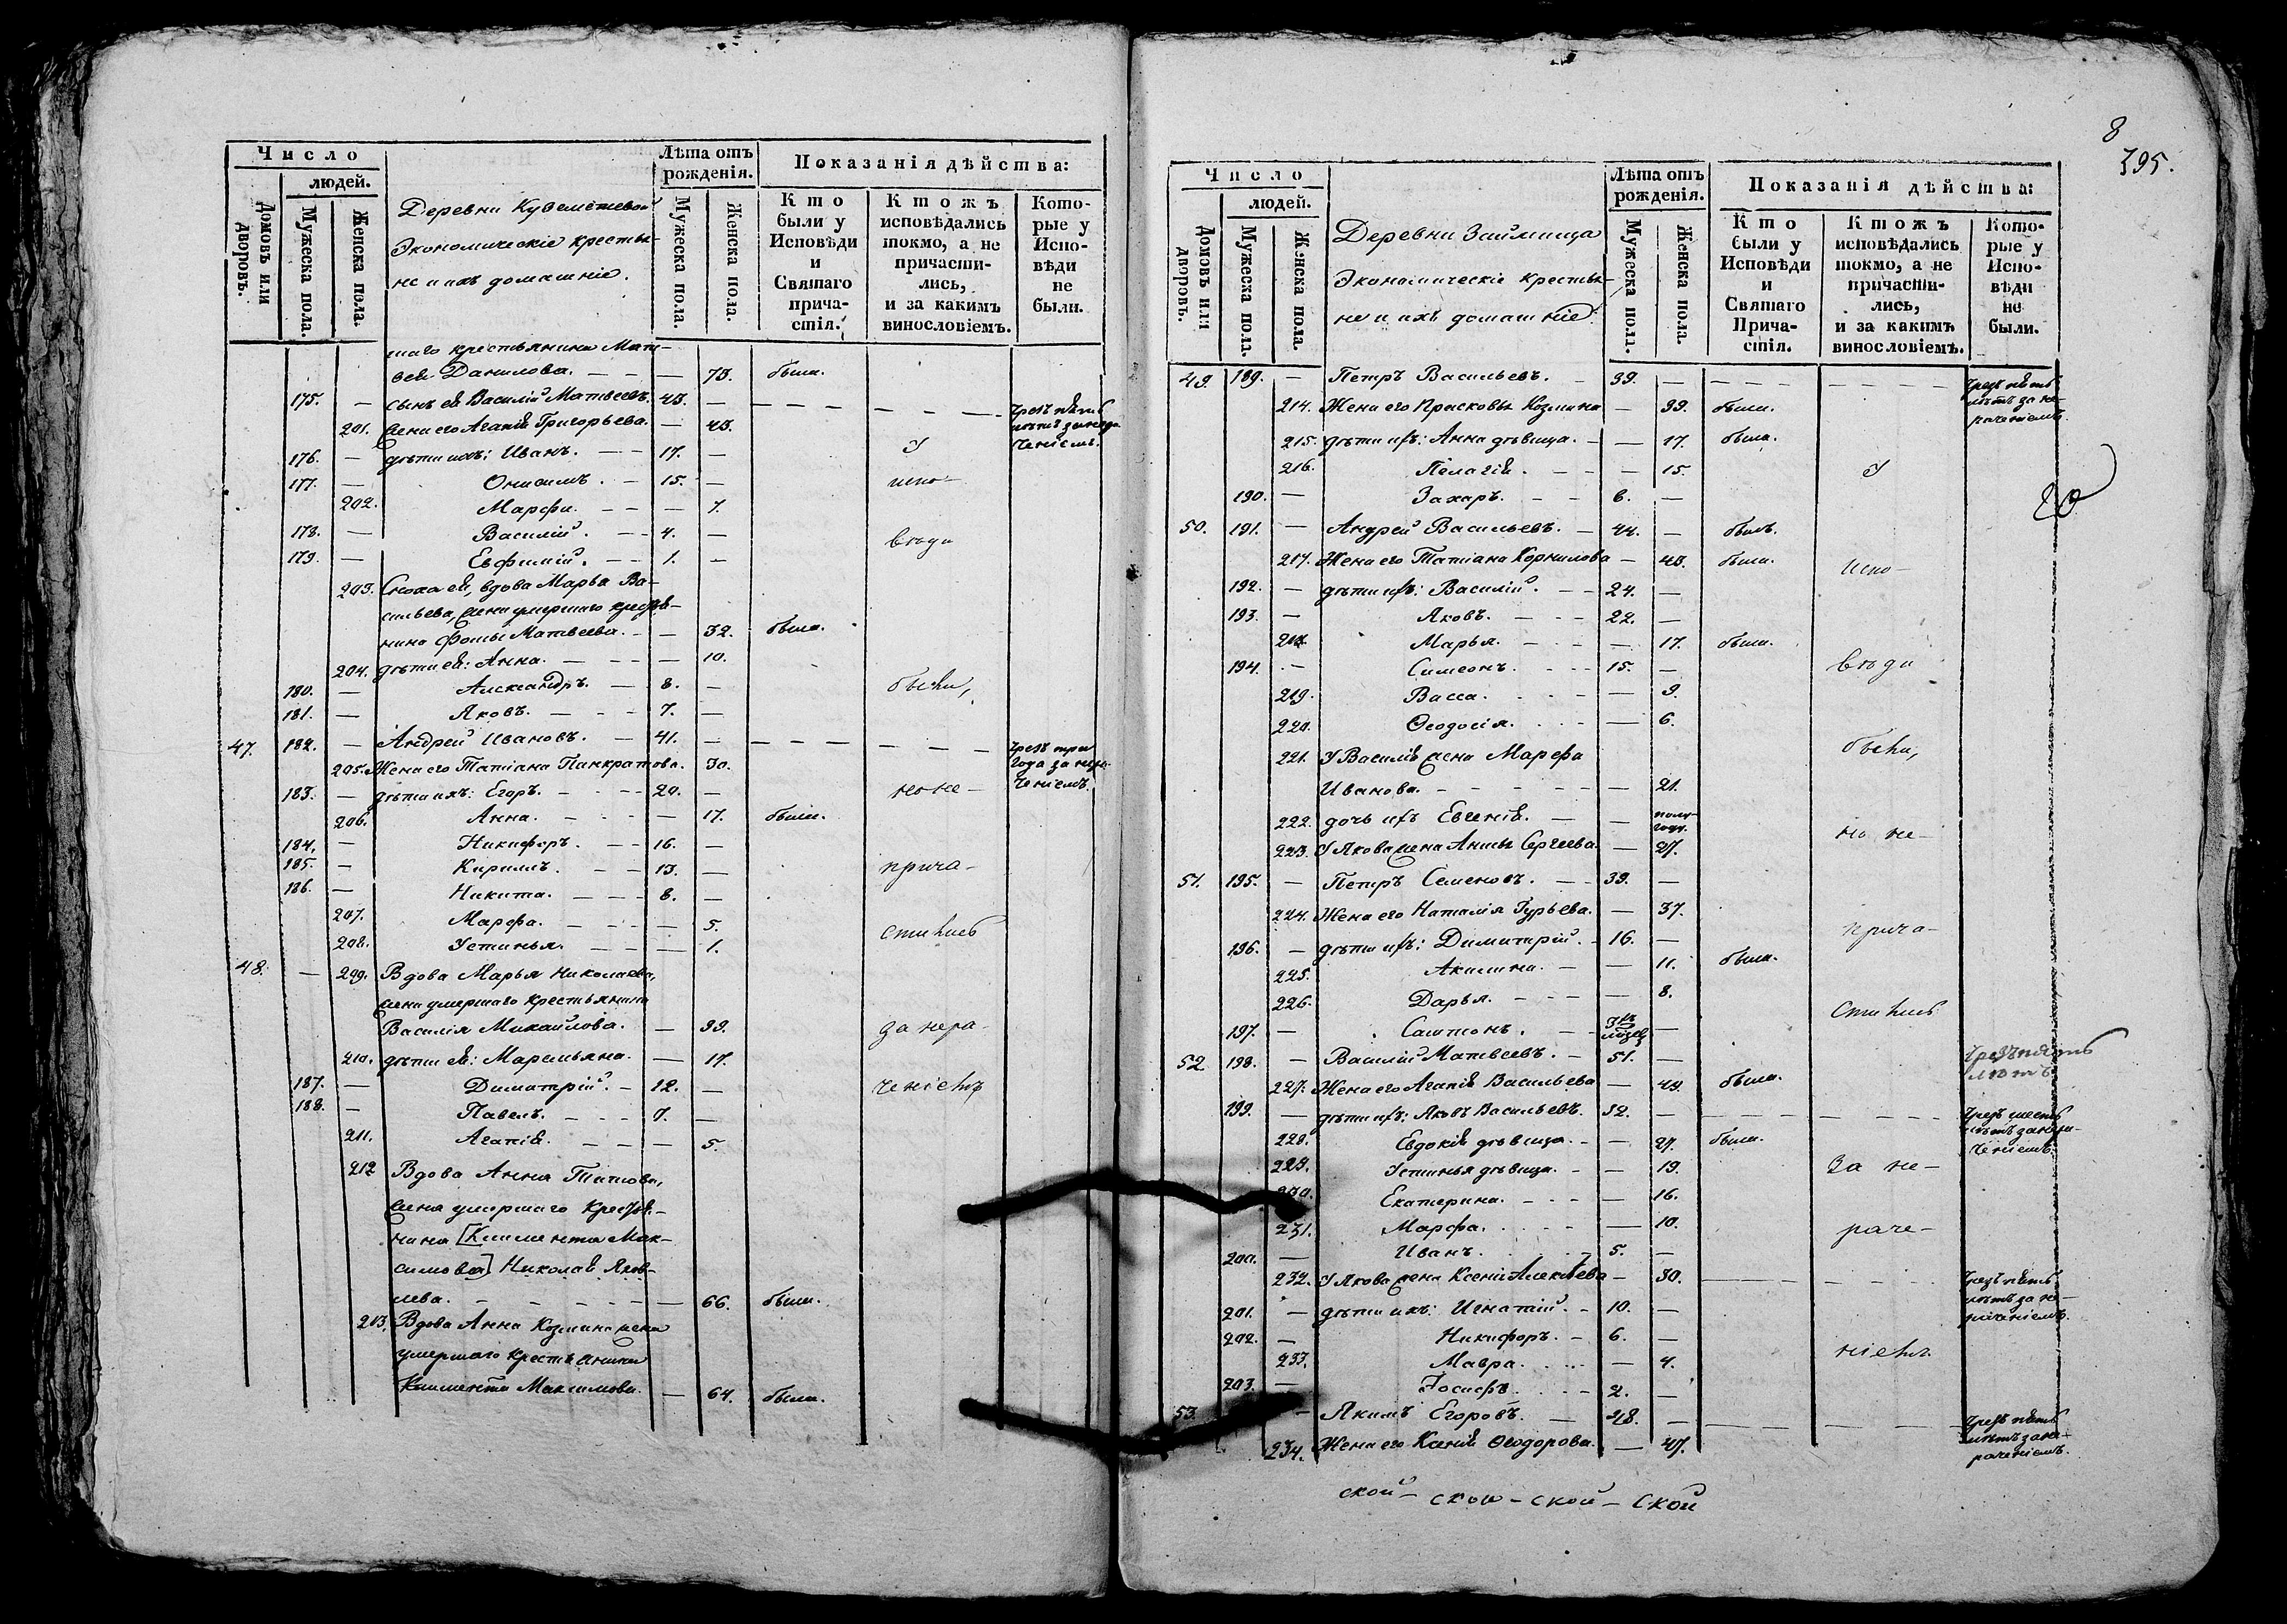 Число
людей.
Домовъ или дворовъ.
Мужеска пола.
Женска пола.
Деревни
Экономическіе крестья-
не и ихъ домашніе.
Лѣта отъ рожденія.
Мужеска пола.
Женска пола.
Показанія дѣйства:
Кто были у Исповѣди и Святаго причастія.
Ктожъ исповѣдались токмо, а не причастились, и за какимъ винословіемъ.
Которые у Исповѣди не были.
шаго крестьянина Мат-
вея Данилова. — 73. была.
175. — сынъ ея Василій Матвеевъ. 43. —
201. жена его Агапія Григорьева. — 43.
176. — дѣти ихъ: Иванъ. 17. — У
177. — Онисимъ. 15. — испо-
202. Марфа. — 7.
178. — Василій. 4. — вѣди
179. — Евфимій. 1. —
203. Сноха ея, вдова Марья Ва-
сильева, жена умершаго крестья-
нина Фомы Матвеева. — 32. была.
204. дѣти ея: Анна. — 10.
180. — Александръ. 8. — были,
181. — Яковъ. 7. —
47. 182. — Андрей Ивановъ. 41. — чрезъ три
года за нера-
ченіемъ.
205. Жена его Татіана Панкратова. 30.
183. — дѣти ихъ: Егоръ. 20. — но не-
206. Анна. — 17. была.
184. — Никифоръ. 16. —
185. — Кирилъ. 13. — прича-
186. — Никита. 8. —
207. Марфа. — 5. стились
208. Устинья. — 1.
48. — 209. Вдова Марья Николаева,
жена умершаго крестьянина
Василія Михайлова. — 39. за нера-
210. дѣти ея: Маремьяна. — 17.
187. — Димитрій. 12. — ченіемъ
188. — Павелъ. 7. —
211. Агапія. — 5.
212 Вдова Анна Титова,
жена умершаго крестья-
нина [Климента Мак-
симова] Николая Яков-
лева. — 66. была.
213. Вдова Анна Козмина жена
умершаго крестьянина
Климента Максимова. — 64. была.
8
395.
Число
людей.
Домовъ или дворовъ.
Мужеска пола.
Женска пола.
Деревни Займища
Экономическіе крестья-
не и ихъ домашніе.
Лѣта отъ рожденія.
Мужеска пола.
Женска пола.
Показанія дѣйства:
Кто были у Исповѣди и Святаго Причастія.
Ктожъ исповѣдались токмо, а не причастились, и за какимъ винословіемъ.
Которые у Исповѣди не были.
49. 189. — Петръ Васильевъ. 39. — чрезъ пять
лѣтъ за не-
раченіемъ.
214. Жена его Прасковья Козмина — 39. была.
215. дѣти ихъ: Анна дѣвица. — 17. была.
216. Пелагія. — 15. У
190. — Захаръ. 6. —
50. 191. — Андрей Васильевъ. 44. — былъ.
217. Жена его Татіана Корнилова — 43. была. испо-
192. — дѣти ихъ: Василій. 24. —
193. — Яковъ. 22. —
218. Марья. — 17. была.
194. — Симеонъ. 15. — вѣди
219. Васса. — 9.
220. Ѳеодосія. — 6.
221. У Василія жена Марфа были,
Иванова. — 21.
222. дочь ихъ Евгенія. — полу-
году. но не-
223. У Якова жена Анисья Сергеева — 27.
51. 195. — Петръ Семеновъ. 39. —
224. Жена его Наталія Гурьева. — 37. прича-
196. — дѣти ихъ: Димитрій. 16. —
225. Акилина. — 11. была.
226. Дарья. — 8. стились
197. —
52. 198. — Василій Матвеевъ. 51. — чрезъ пять
лѣтъ
227. Жена его Агапія Васильева — 49. была.
199. — дѣти ихъ: Яковъ Васильевъ. 32. — чрезъ шесть
лѣтъ за нера-
ченіемъ.
228. Евдокія дѣвица. — 27. была.
229. Устинья дѣвица. — 19. за не-
230. Екатерина. — 16.
231. Марфа. — 10. раче-
200. — Иванъ. 5. —
232. У Якова жена Ксенія Алексѣева — 30. чрезъ пять
лѣтъ за не-
раченіемъ.
201. — дѣти ихъ: Игнатій. 10. —
202. — Никифоръ. 6. —
233. Мавра. — 4. ніемъ.
203. — Іосифъ. 2. —
53. — Якимъ Егоровъ. 48. — чрезъ пять
лѣтъ за не-
раченіемъ.
234. Жена его Ксенія Ѳеодорова. — 47.
ской — ской — ской — ской